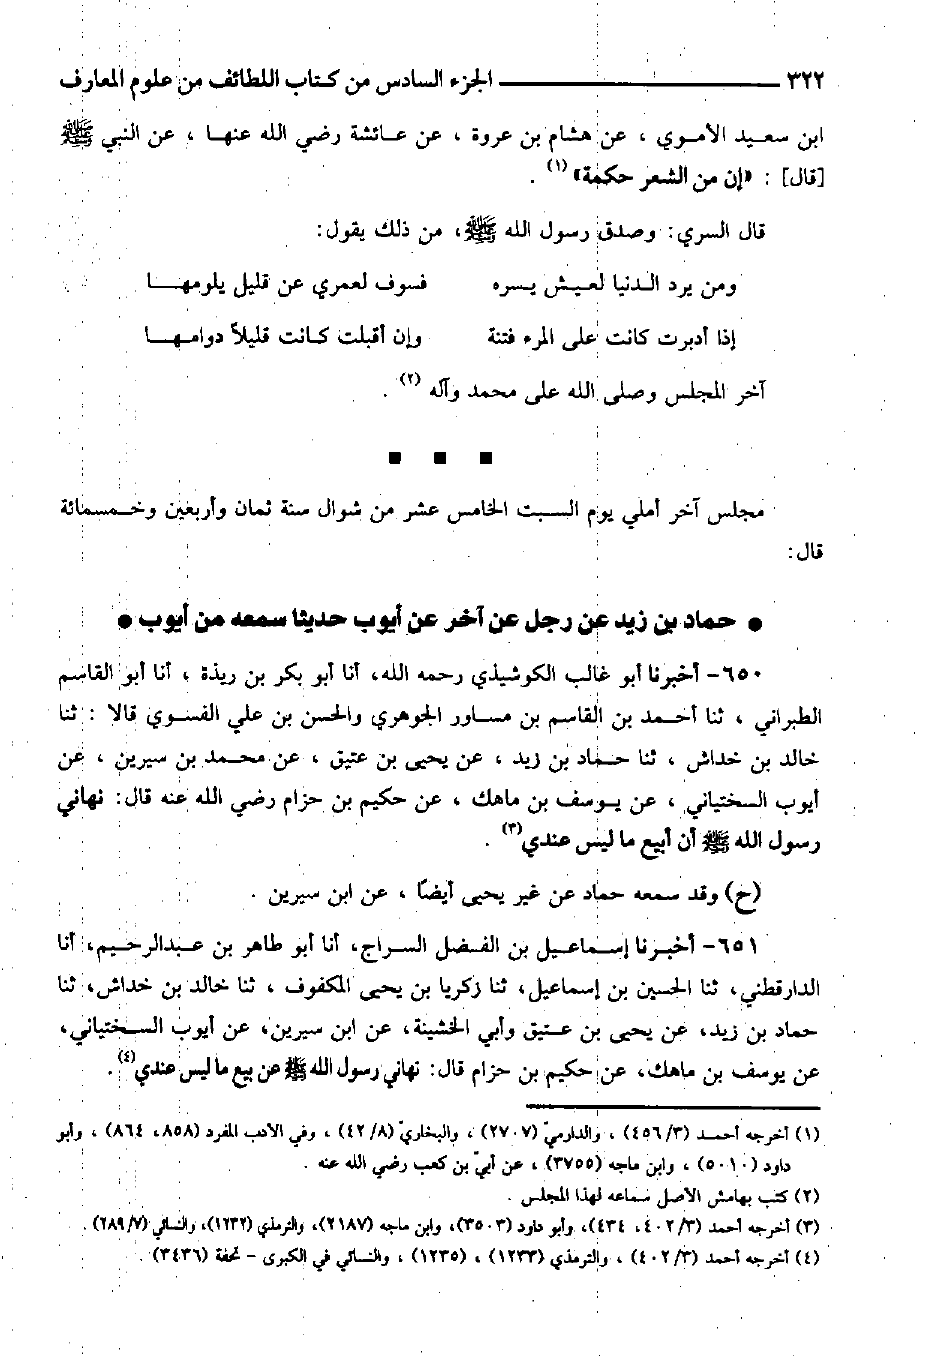 ٣٢٢ الجزء السادس من كتاب اللطائف من علوم المعارف
ابن سعيد الأموي ، عن هشام بن عروة ، عن عائشة رضي الله عنها ، عن النبي ﷺ
[قال] : «إن من الشعر حكمة» (١) .
قال السري: وصدق رسول الله ﷺ، من ذلك يقول:
ومن يرد الدنيا لعيش يسره فسوف لعمري عن قليل يلومها
إذا أدبرت كانت على المرء فتنة وإن أقبلت كانت قليلاً دوامها
آخر المجلس وصلى الله على محمد وآله (٢) .
■ ■ ■
مجلس آخر أملي يوم السبت الخامس عشر من شوال سنة ثمان وأربعين وخمسمائة
قال:
● حماد بن زيد عن رجل عن آخر عن أيوب حديثا سمعه من أيوب ●
٦٥٠- أخبرنا أبو غالب الكوشيذي رحمه الله، أنا أبو بكر بن ريذة ، أنا أبو القاسم
الطبراني ، ثنا أحمد بن القاسم بن مساور الجوهري والحسن بن علي الفسوي قالا : ثنا
خالد بن خداش ، ثنا حماد بن زيد ، عن يحيى بن عتيق ، عن محمد بن سيرين ، عن
أيوب السختياني ، عن يوسف بن ماهك ، عن حكيم بن حزام رضي الله عنه قال: نهاني
رسول الله ﷺ أن أبيع ما ليس عندي(٣) .
(ح) وقد سمعه حماد عن غير يحيى أيضًا ، عن ابن سيرين .
٦٥١- أخبرنا إسماعيل بن الفضل السراج، أنا أبو طاهر بن عبدالرحيم، أنا
الدارقطني، ثنا الحسين بن إسماعيل، ثنا زكريا بن يحيى المكفوف ، ثنا خالد بن خداش، ثنا
حماد بن زيد، عن يحيى بن عتيق وأبي الخشينة، عن ابن سيرين، عن أيوب السختياني،
عن يوسف بن ماهك، عن حكيم بن حزام قال: نهاني رسول الله ﷺ عن بيع ما ليس عندي(٤).
(١) أخرجه أحمد (٤٥٦/٣) ، والدارميّ (٢٧٠٧) ، والبخاريّ (٤٢/٨) ، وفي الأدب المفرد (٨٥٨، ٨٦٤) ، وأبو
داود (٥٠١٠) ، وابن ماجه (٣٧٥٥) ، عن أبيّ بن كعب رضي الله عنه .
(٢) كتب بهامش الأصل سماعه لهذا المجلس .
(٣) أخرجه أحمد (٤٠٢/٣، ٤٣٤)، وأبو داود (٣٥٠٣)، وابن ماجه (٢١٨٧)، والترمذي (١٢٣٢)، والنسائي (٢٨٩/٧) .
(٤) أخرجه أحمد (٤٠٢/٣) ، والترمذي (١٢٣٣) ، (١٢٣٥) ، والنسائي في الكبرى - تحفة (٣٤٣٦) .